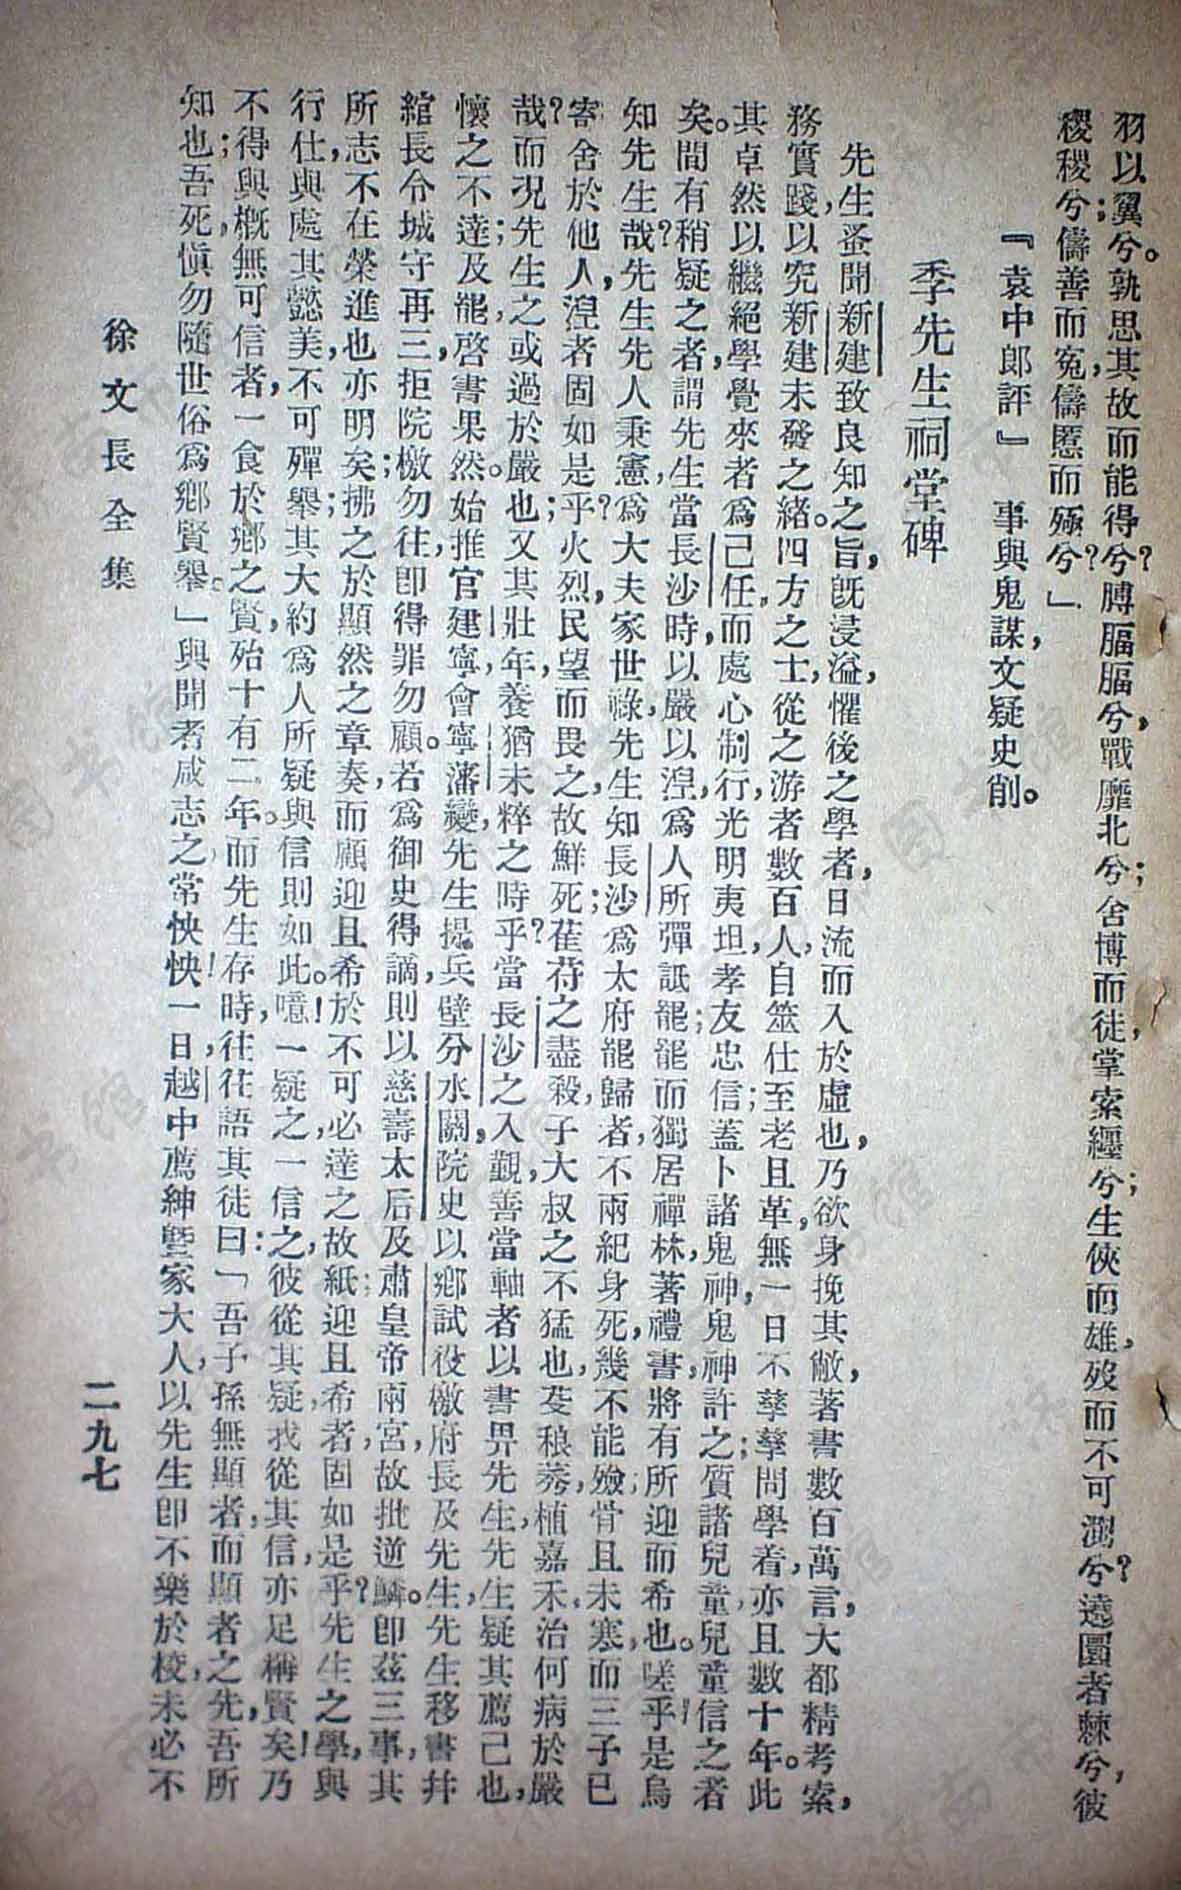 羽以翼兮。孰思其故而能得兮？膊膈膈兮，戰靡北兮；舍博而徒掌索纏兮；生俠而雄，歿而不可測兮？遶圜者棘兮，彼
稷稷兮；儔善而寃，儔慝而殛兮？」
『袁中郎評』　事與鬼謀，文疑史削。
季先生祠堂碑
先生蚤聞新建致良知之旨，旣浸溢，懼後之學者，日流而入於虛也，乃欲身挽其敝，著書數百萬言，大都精考索，
務實踐，以究新建未發之緒。四方之士，從之游者數百人，自筮仕至老且革，無一日不孳孳問學；着亦且數十年。此
其卓然以繼絕學覺來者爲己任，而處心制行，光明夷坦，孝友忠信；蓋卜諸鬼神，鬼神許之；質諸兒童，兒童信之者
矣。間有稍疑之者，謂先生當長沙時，以嚴以湼，爲人所彈詆罷；罷而獨居禪林，著禮書，將有所迎而希也。嗟乎！是烏
知先生哉？先生先人秉憲，爲大夫家世祿，先生知長沙；爲太府罷歸者，不兩紀身死，幾不能殮；骨且未寒，而三子已
寄舍於他人，湼者固如是乎？火烈，民望而畏之，故鮮死；萑苻之盡殺，子大叔之不猛也，芟稂莠，植嘉禾，治何病於嚴
哉？而況先生之或過於嚴也，又其壯年，養猶未粹之時乎？當長沙之入覲，善當軸者以書畀先生，先生疑其薦己也，
懷之不達；及罷，啓書果然。始推官建寧，會寧藩變，先生提兵壁分水關，院史以鄉試役檄府長及先生，先生移書幷
綰長令城守，再三拒院檄勿往；卽得罪勿顧。若爲御史得謫，則以慈壽太后及肅皇帝兩宮，故批逆鱗。卽茲三事，其
所志不在榮進也亦明矣；拂之於顯然之章奏，而顧迎且希於不可必達之故紙，迎且希者，固如是乎？先生之學，與
行仕，與處其懿美，不可殫舉；其大約爲人所疑與信則如此。噫！一疑之，一信之，彼從其疑，我從其信，亦足稱賢矣！乃
不得與，槪無可信者，一食於鄉之賢，殆十有二年。而先生存時，往往語其徒曰：「吾子孫無顯者，而顯者之先，吾所
知也；吾死，愼勿隨世俗爲鄉賢舉。」與聞者咸志之，常怏怏！一日，越中薦紳曁家大人，以先生卽不樂於校，未必不
徐文長全集
二九七